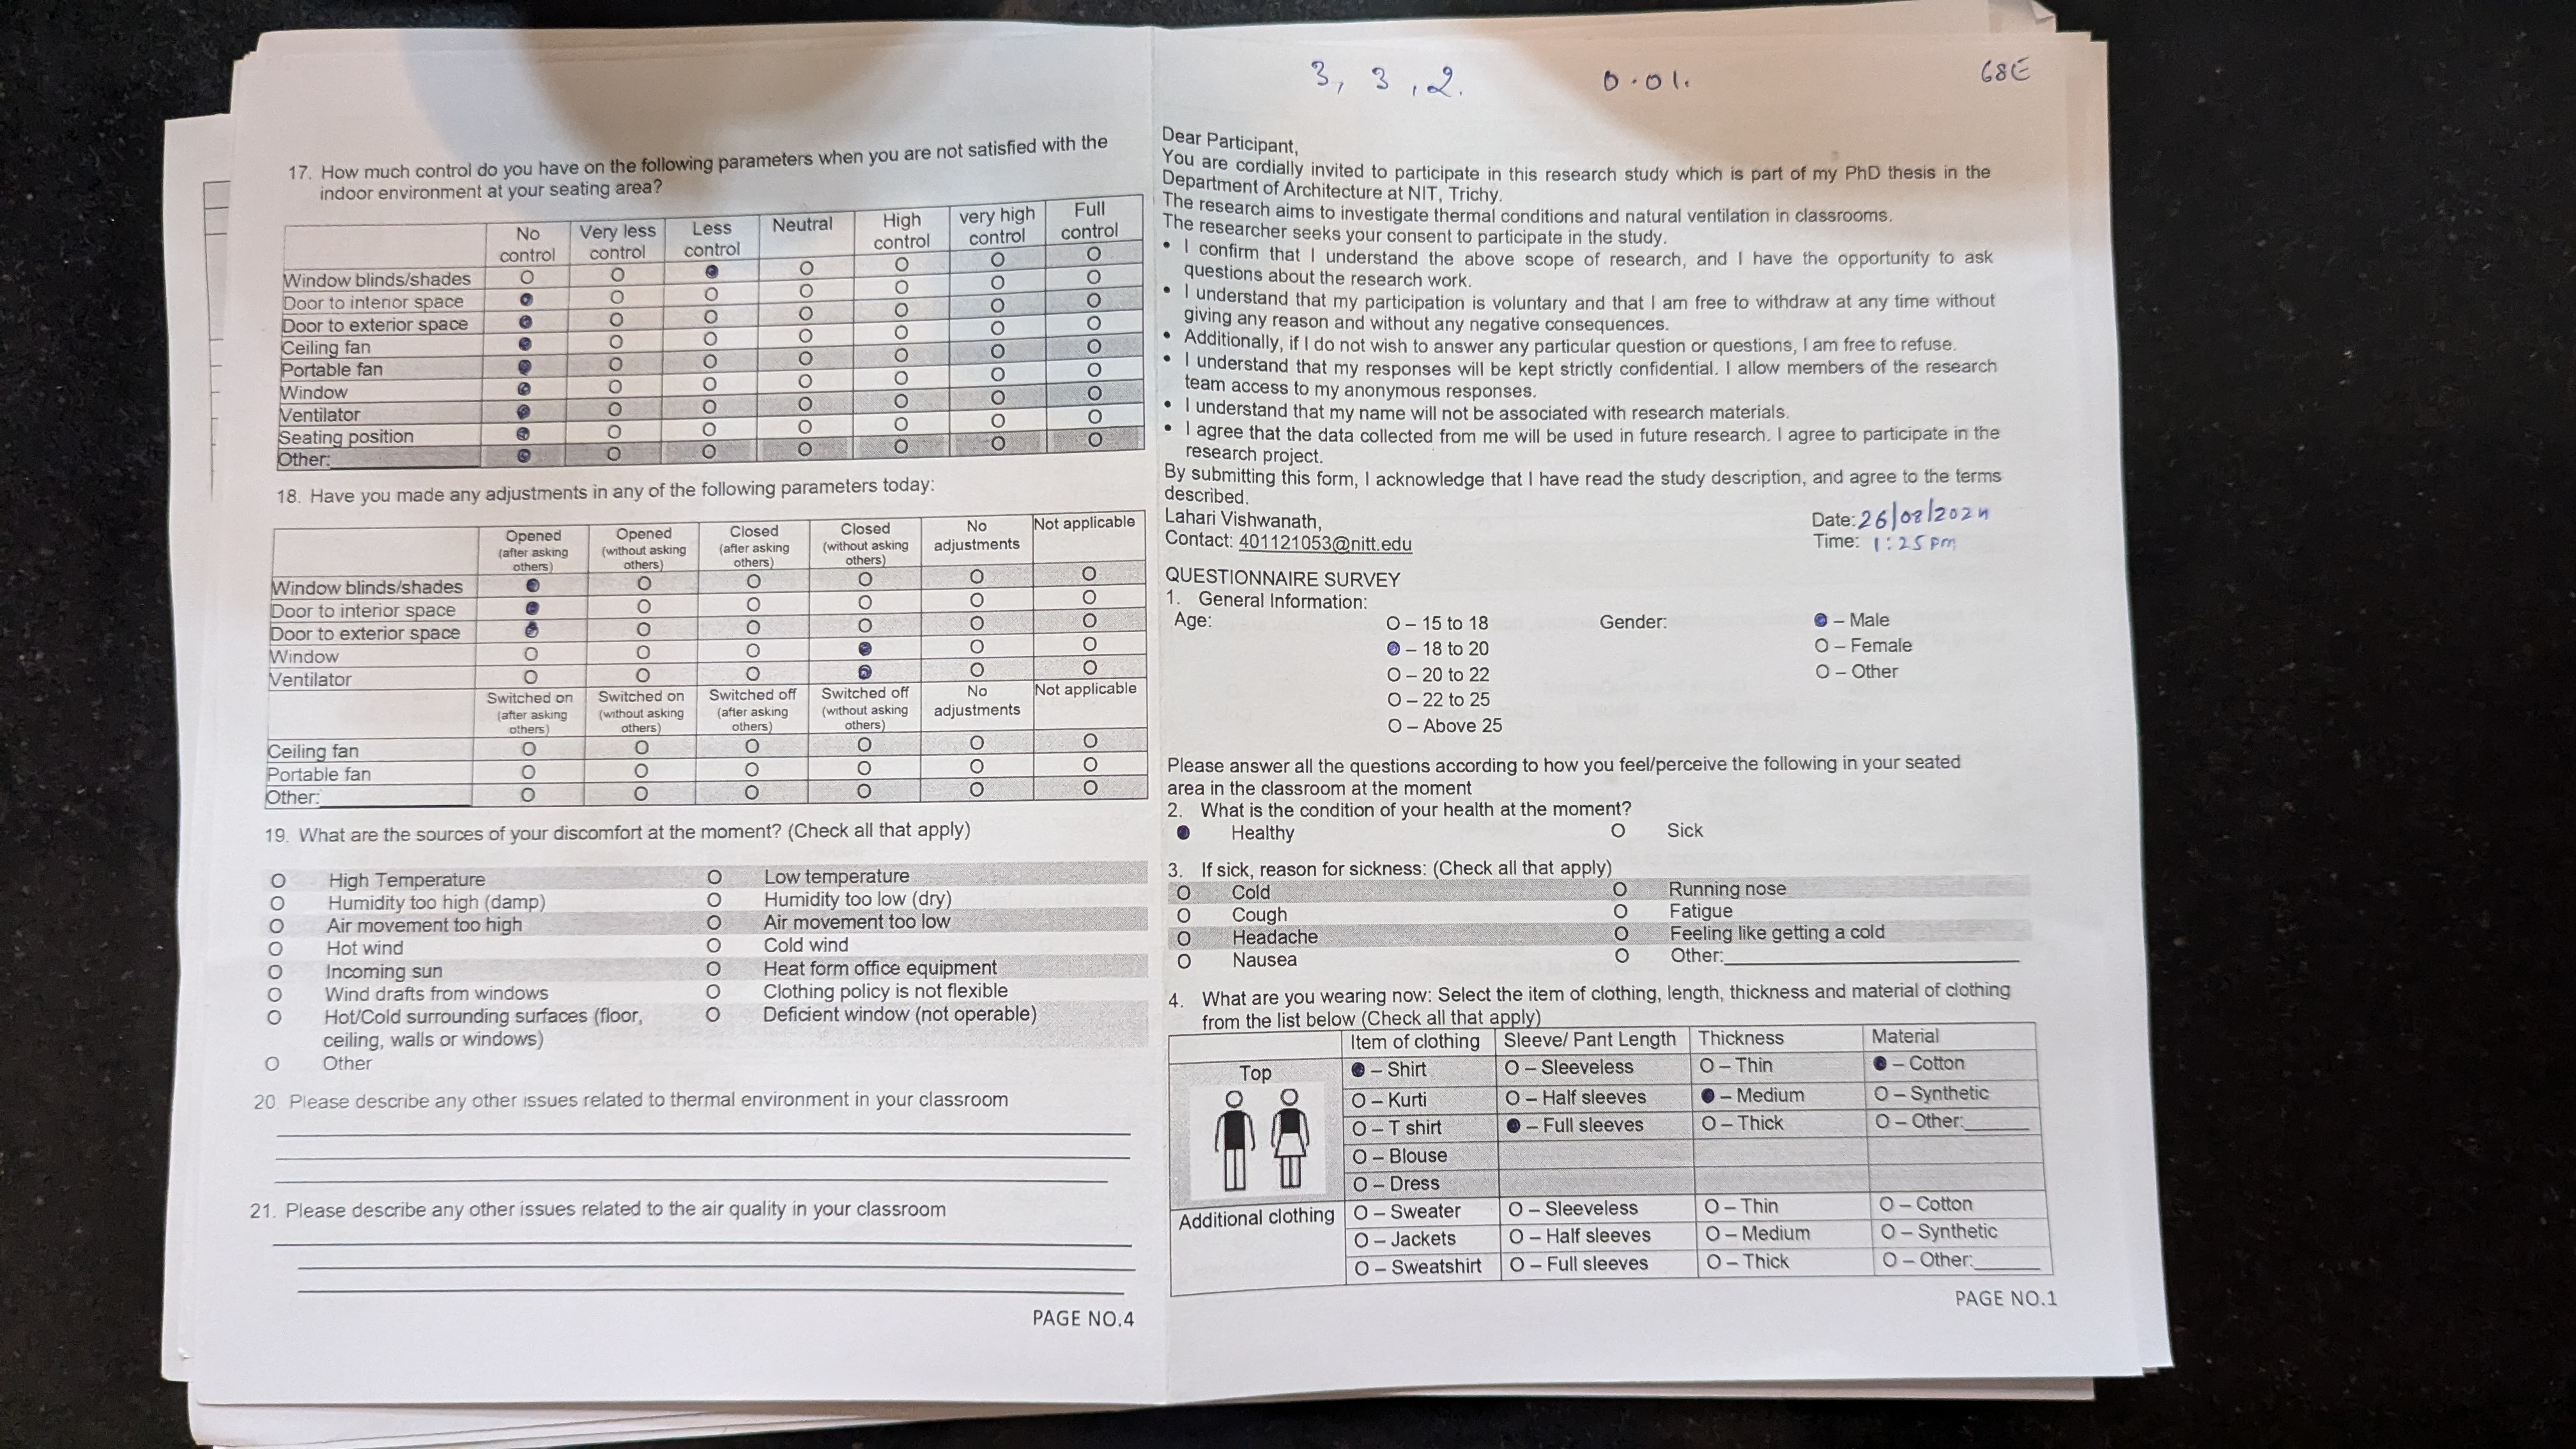 17. How much control do you have on the following parameters when you are not satisfied with the
indoor environment at your seating area?
No control Very less control Less control Neutral High control very high control Full control
Window blinds/shades O O ● O O O O
Door to interior space ● O O O O O O
Door to exterior space ● O O O O O O
Ceiling fan ● O O O O O O
Portable fan ● O O O O O O
Window ● O O O O O O
Ventilator ● O O O O O O
Seating position ● O O O O O O
Other:________ ● O O O O O O
18. Have you made any adjustments in any of the following parameters today:
Opened (after asking others) Opened (without asking others) Closed (after asking others) Closed (without asking others) No adjustments Not applicable
Window blinds/shades ● O O O O O
Door to interior space ● O O O O O
Door to exterior space ● O O O O O
Window O O O ● O O
Ventilator O O O ● O O
Switched on (after asking others) Switched on (without asking others) Switched off (after asking others) Switched off (without asking others) No adjustments Not applicable
Ceiling fan O O O O O O
Portable fan O O O O O O
Other:________ O O O O O O
19. What are the sources of your discomfort at the moment? (Check all that apply)
O High Temperature O Low temperature
O Humidity too high (damp) O Humidity too low (dry)
O Air movement too high O Air movement too low
O Hot wind O Cold wind
O Incoming sun O Heat form office equipment
O Wind drafts from windows O Clothing policy is not flexible
O Hot/Cold surrounding surfaces (floor, O Deficient window (not operable)
ceiling, walls or windows)
O Other
20. Please describe any other issues related to thermal environment in your classroom
21. Please describe any other issues related to the air quality in your classroom
PAGE NO.4
3, 3, 2. 0.01. 68E
Dear Participant,
You are cordially invited to participate in this research study which is part of my PhD thesis in the
Department of Architecture at NIT, Trichy.
The research aims to investigate thermal conditions and natural ventilation in classrooms.
The researcher seeks your consent to participate in the study.
• I confirm that I understand the above scope of research, and I have the opportunity to ask
questions about the research work.
• I understand that my participation is voluntary and that I am free to withdraw at any time without
giving any reason and without any negative consequences.
• Additionally, if I do not wish to answer any particular question or questions, I am free to refuse.
• I understand that my responses will be kept strictly confidential. I allow members of the research
team access to my anonymous responses.
• I understand that my name will not be associated with research materials.
• I agree that the data collected from me will be used in future research. I agree to participate in the
research project.
By submitting this form, I acknowledge that I have read the study description, and agree to the terms
described.
Lahari Vishwanath, Date: 26/08/2024
Contact: 401121053@nitt.edu Time: 1:25 pm
QUESTIONNAIRE SURVEY
1. General Information:
Age: O – 15 to 18 Gender: ● – Male
● – 18 to 20 O – Female
O – 20 to 22 O – Other
O – 22 to 25
O – Above 25
Please answer all the questions according to how you feel/perceive the following in your seated
area in the classroom at the moment
2. What is the condition of your health at the moment?
● Healthy O Sick
3. If sick, reason for sickness: (Check all that apply)
O Cold O Running nose
O Cough O Fatigue
O Headache O Feeling like getting a cold
O Nausea O Other:________
4. What are you wearing now: Select the item of clothing, length, thickness and material of clothing
from the list below (Check all that apply)
Item of clothing Sleeve/ Pant Length Thickness Material
Top ● – Shirt O – Sleeveless O – Thin ● – Cotton
O – Kurti O – Half sleeves ● – Medium O – Synthetic
O – T shirt ● – Full sleeves O – Thick O – Other:______
O – Blouse
O – Dress
Additional clothing O – Sweater O – Sleeveless O – Thin O – Cotton
O – Jackets O – Half sleeves O – Medium O – Synthetic
O – Sweatshirt O – Full sleeves O – Thick O – Other:______
PAGE NO.1